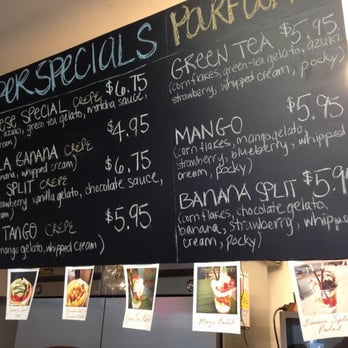 PER SPECIALS
ESE SPECIAL CREPE $6.75
azuki, green tea gelato, matcha sauce,
cream)
$4.95
LA BANANA CREPE
banana, whipped cream)
$6.75
SPLIT CREPE
strawberry, vanilla gelato, chocolate sauce,
cream)
$5.95
TANGO CREPE
mango gelato, whipped cream)
PARFAI
GREEN TEA $5.95
(cornflakes, green-tea gelato, azuki
strawberry, whipped cream, pocky)
MANGO $5.95
(cornflakes, mango gelato,
strawberry, blueberry, whipped
cream, pocky)
BANANA SPLIT $5.9
(cornflakes, chocolate gelato,
banana, strawberry, whip
cream, pocky)
Mango Parfait
Banana Split
Parfait